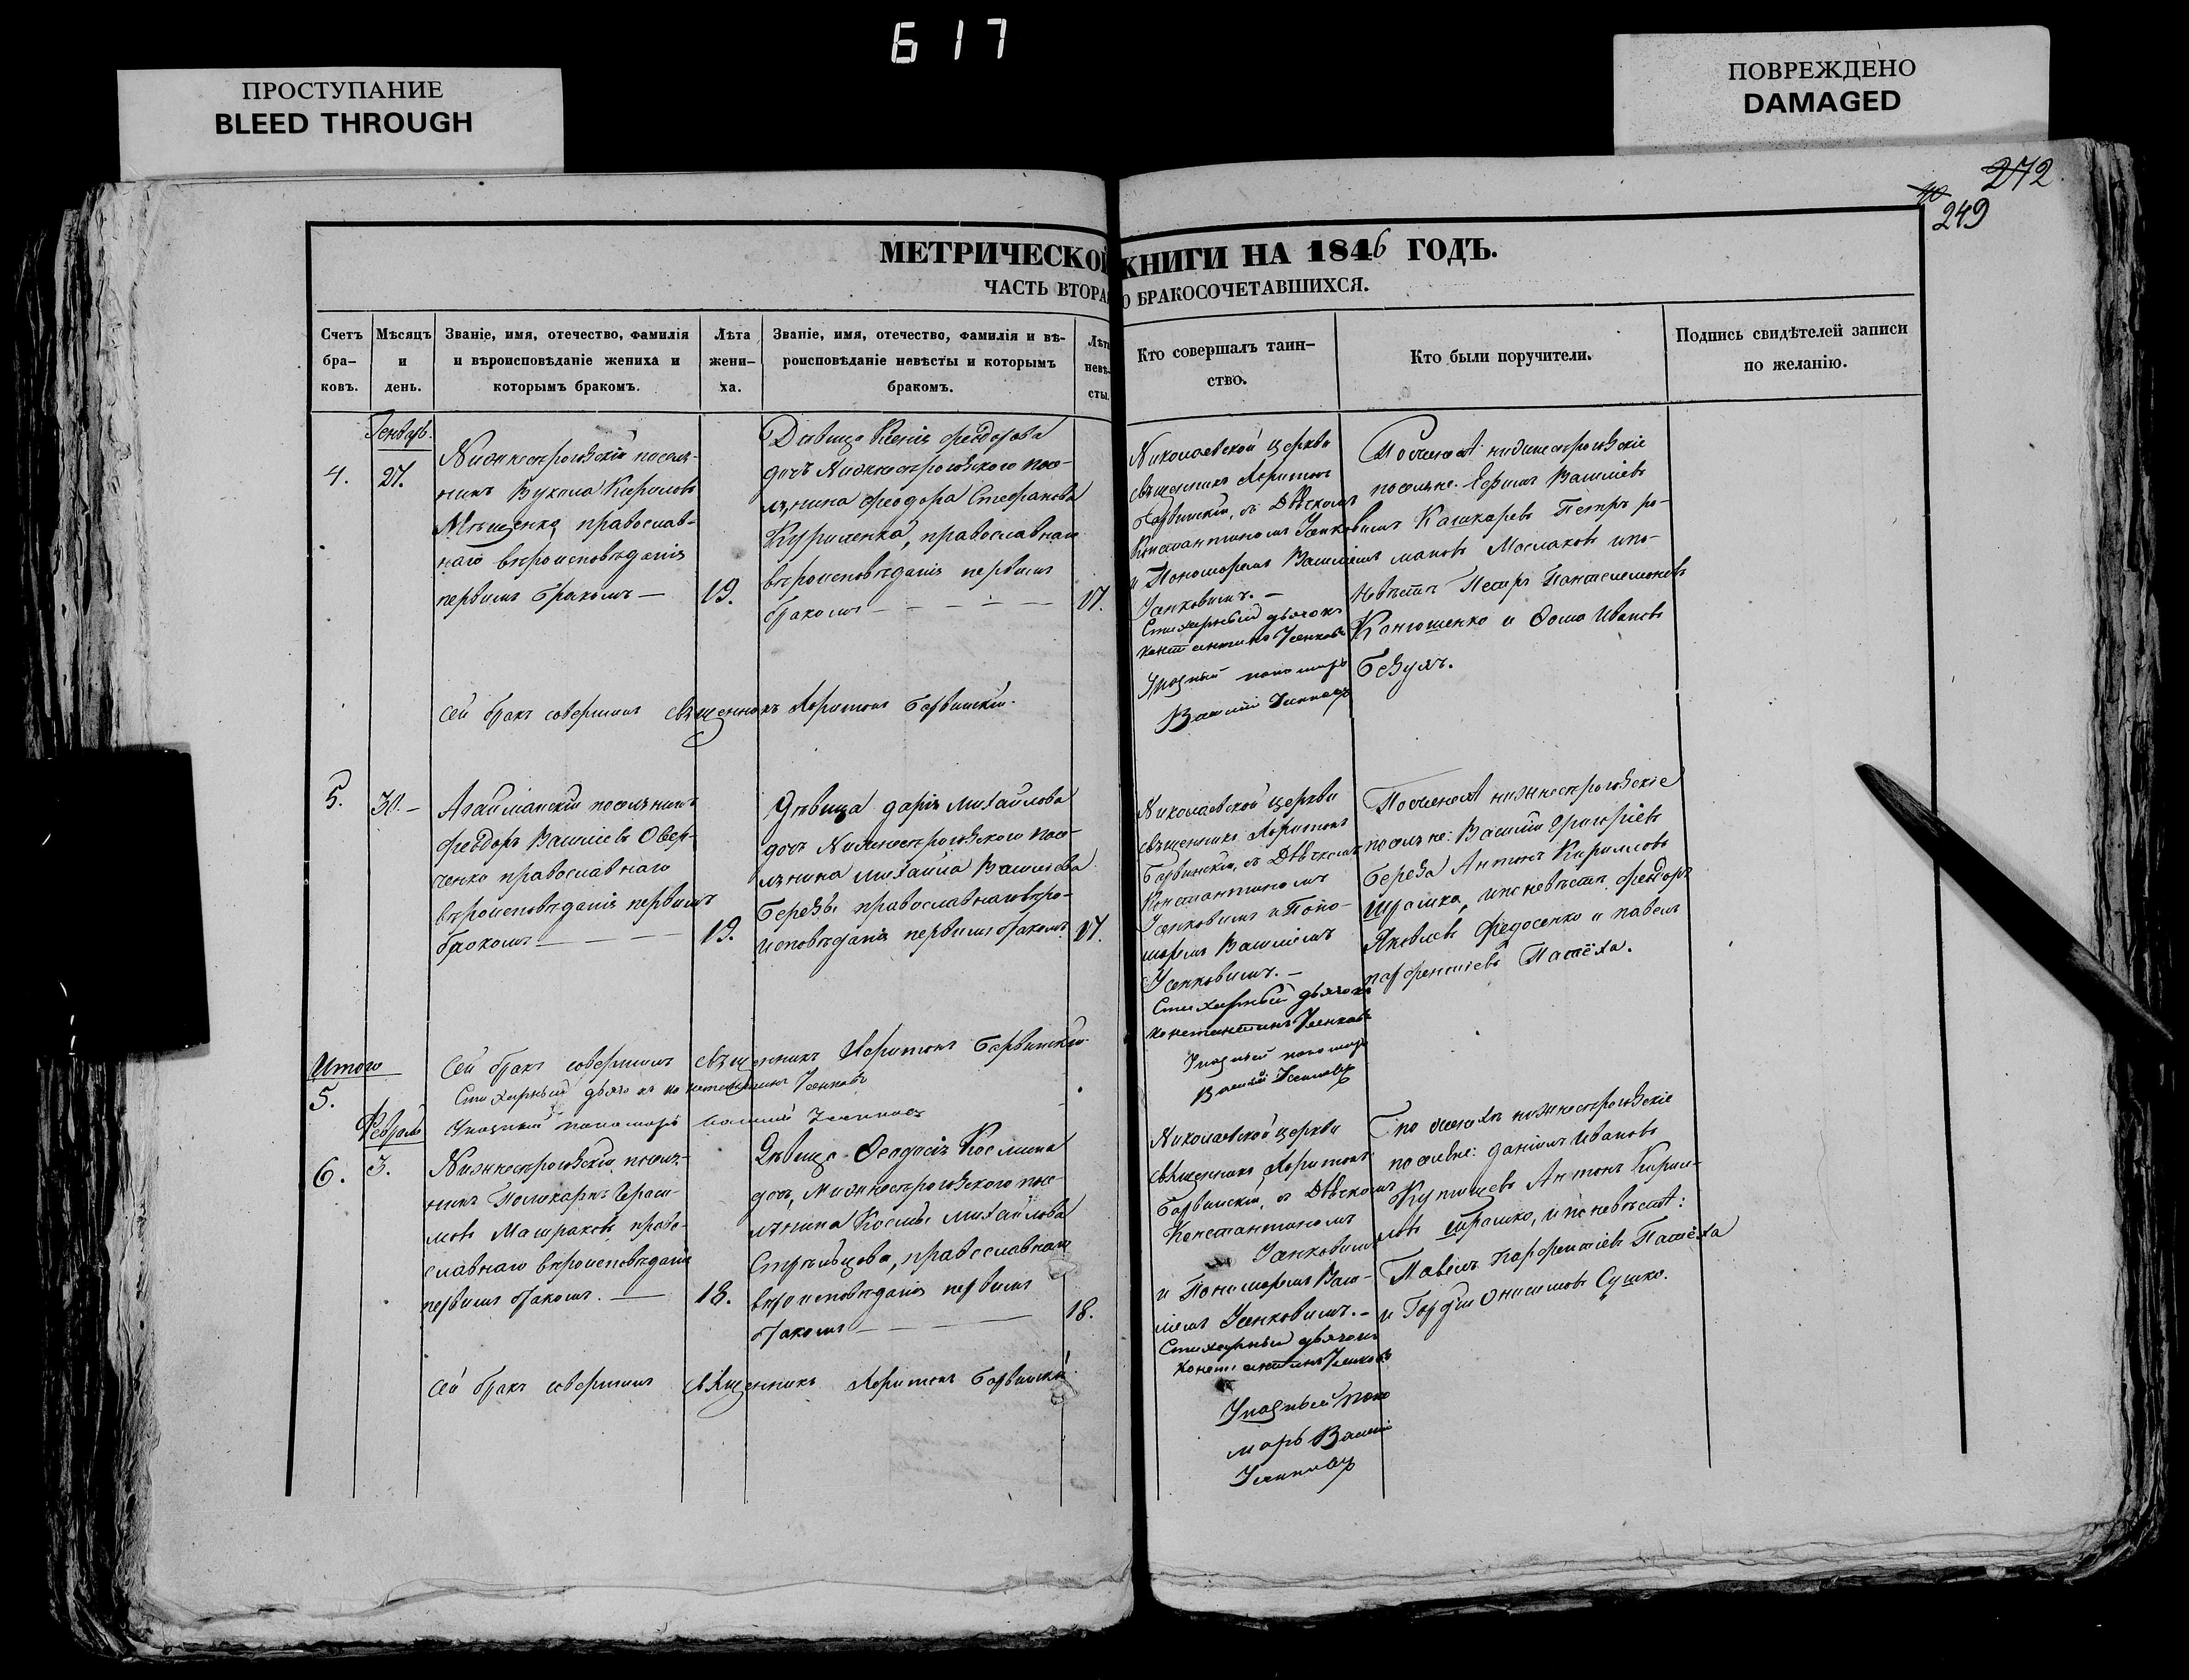 617
ПРОСТУПАНИЕ
BLEED THROUGH
ПОВРЕЖДЕНО
DAMAGED
272
40
249
МЕТРИЧЕСКОЙ КНИГИ НА 1846 ГОДЪ.
ЧАСТЬ ВТОРАЯ О БРАКОСОЧЕТАВШИХСЯ.
Счетъ
бра-
ковъ.
Мѣсяцъ
и
день.
Званіе, имя, отечество, фамилія
и вѣроисповѣданіе жениха и
которымъ бракомъ.
Лѣта
жени-
ха.
Званіе, имя, отечество, фамилія и вѣ-
роисповѣданіе невѣсты и которымъ
бракомъ.
Лѣта
невѣ-
сты.
Кто совершалъ таин-
ство.
Кто были поручители.
Подпись свидѣтелей записи
по желанію.
Генварь.
4.
27.
Нижнесѣрогозскій поселя-
нинъ Вукола Кириловъ
Мѣщенко, православ-
наго вѣроисповѣданія
первымъ бракомъ —
19.
Дѣвица Ксенія Феодорова
дочь Нижнесѣрогозскаго посе-
лянина Феодора Стефанова
Куриленка, православнаго
вѣроисповѣданія первымъ
бракомъ
17.
Николаевской церкви
священникъ Харитонъ
Барвинскій, съ Дьячкомъ
Константиномъ Усенковымъ
и Пономаремъ Василіемъ
Усенковымъ. —
Стихарный дьячокъ
Константинъ Усенковъ
Указный пономарь
Василій Усенковъ
По женихѣ нижнесѣрогозскіе
поселяне: Ефимъ Васильевъ
Кашкаревъ Петръ ро-
мановъ Маслаковъ и по
невѣстѣ Петръ Пантелеимоновъ
Канюшенко и Фома Ивановъ
Безуяъ.
Сей бракъ совершилъ священникъ Харитонъ Барвинскій.
5.
30. —
Агайманскій поселянинъ
Феодоръ Васильевъ Овер-
ченко православнаго
вѣроисповѣданія первымъ
бракомъ
19.
Дѣвица Дарія Михайлова
дочь Нижнесѣрогозскаго посе-
лянина Михаила Васильева
Березы православнаго вѣро-
исповѣданія первымъ бракомъ
17.
Николаевской церкви
священникъ Харитонъ
Барвинскій, съ Дьячкомъ
Константиномъ
Усенковымъ и Поно-
маремъ Василіемъ
Усенковымъ. —
Стихарный дьячокъ
Константинъ Усенковъ
Указный пономарь
Василій Усенковъ
По женихѣ нижнесѣрогозскіе
поселяне: Василій Григорьевъ
Береза Антонъ Кириловъ
Шрамко, и по невѣстѣ Феодоръ
Яковлевъ Федосенко и Павелъ
Парфентіевъ Патёха.
Итого
5.
Сей бракъ совершилъ священникъ Харитонъ Барвинскій
Стихарный дьячокъ Константинъ Усенковъ
Указный пономарь Василій Усенковъ
Февраль
6.
3.
Нижнесѣрогозскій поселя-
нинъ Поликарпъ Гераси-
мовъ Маграковъ право-
славнаго вѣроисповѣданія
первымъ бракомъ. —
18.
Дѣвица Феодосія Космина
дочь, Нижнесѣрогозскаго посе-
лянина Космы Михайлова
Стрѣльцова, православнаго
вѣроисповѣданія первымъ
бракомъ
18.
Николаевской церкви
священникъ Харитонъ
Барвинскій, съ Дьячкомъ
Константиномъ
Усенковымъ
и Пономаремъ Васи-
ліемъ Усенковымъ. —
Стихарный дьячокъ
Константинъ Усенковъ
Указный поно
марь Василій
Усенковъ
По женихѣ нижнесѣрогозскіе
поселяне: Даніилъ Ивановъ
Купищевъ Антонъ Кирил-
ловъ Шрамко, и по невѣстѣ:
Павелъ Парфентіевъ Патёха
и Гордѣй Онисимовъ Сушко.
Сей бракъ совершилъ священникъ Харитонъ Барвинскій